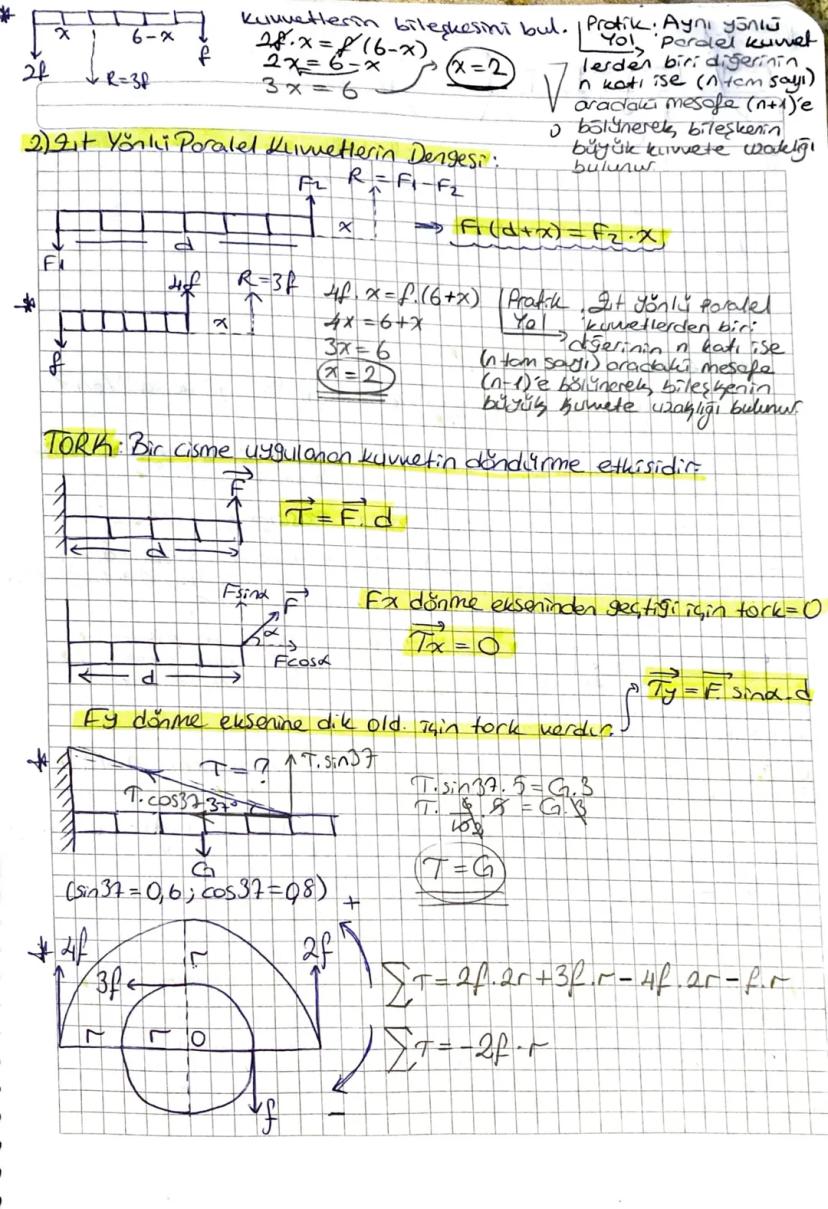 * x 6-x kuvvetlerin bileşkesini bul.
2f R=3f f
2f.x=f(6-x)
2x=6-x
3x=6 x=2
Pratik Yol: Aynı yönlü
Paralel kuvvet
lerden biri diğerinin
n katı ise (n tam sayı)
aradaki mesafe (n+1)'e
bölünerek, bileşkenin
büyük kuvvete uzaklığı
bulunur
2) Zıt Yönlü Paralel Kuvvetlerin Dengesi:
F2 R=F1-F2
d x ⇒ F1(d+x)=F2.x
F1
* 4f R=3f
f x
4f.x=f.(6+x)
4x=6+x
3x=6
x=2
Pratik Yol: Zıt yönlü paralel
kuvvetlerden biri
diğerinin n katı ise
(n tam sayı) aradaki mesafe
(n-1)'e bölünerek, bileşkenin
büyük kuvvete uzaklığı bulunur.
TORK: Bir cisme uygulanan kuvvetin döndürme etkisidir.
F
d
T=F.d
Fsinα F
α
Fcosα
d
Fx dönme ekseninden geçtiği için tork=0
Tx=0
Ty=F.sinα.d
Fy dönme eksenine dik old. için tork vardır.
* T=? T.sin37
T.cos37 37°
G
(sin37=0,6; cos37=0,8)
T.sin37.5=G.3
T. 6/10 .5=G.3
T=G
* 4f 2f +
3f r
r r O
f -
∑T=2f.2r+3f.r-4f.2r-f.r
∑T=-2f.r